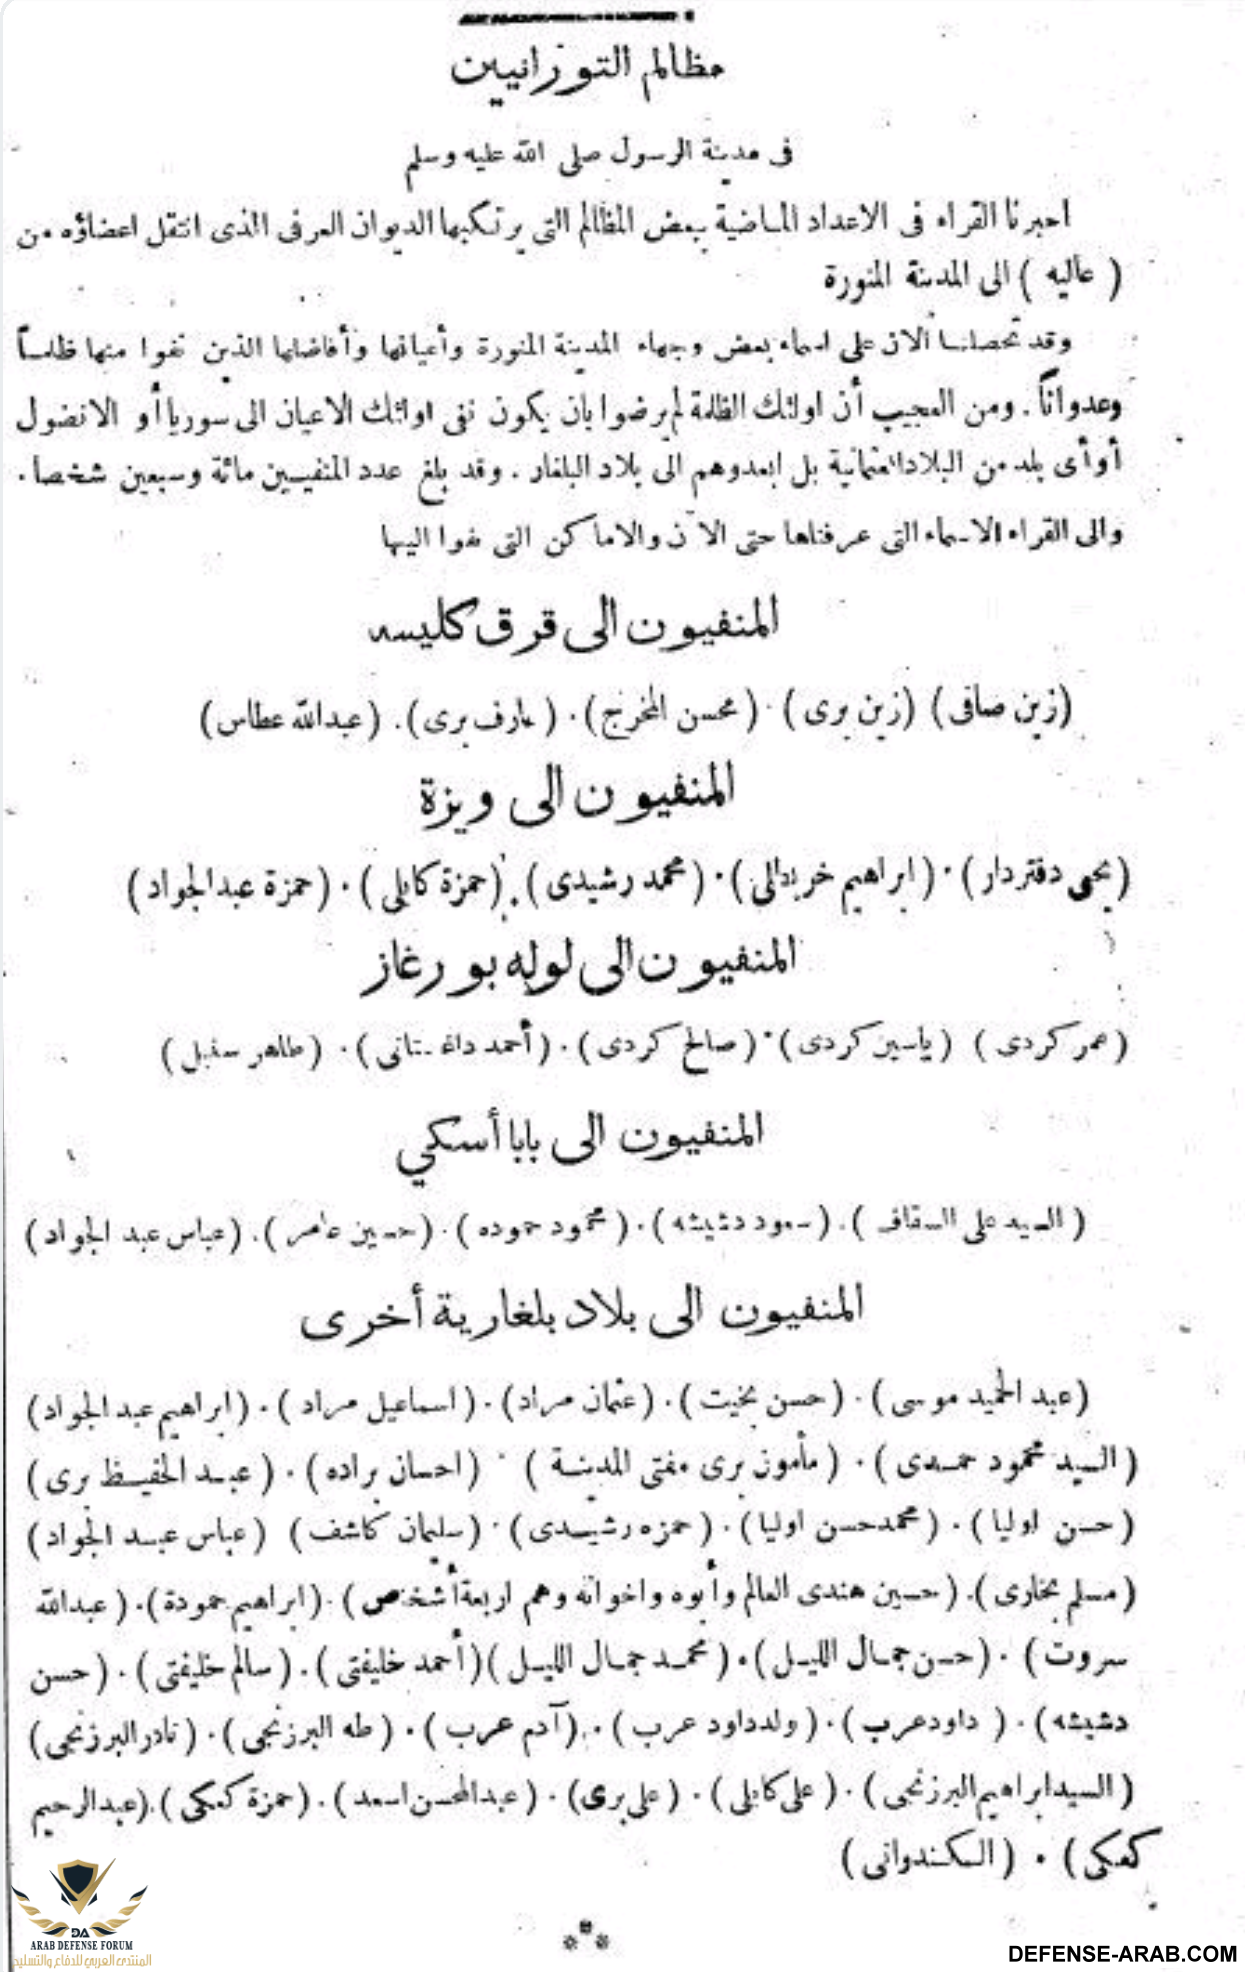 مظالم التوزانيين
فى مدينة الرسول صلى الله عليه وسلم
احبرنا القراء فى الاعداد الماضية ببعض المظالم التى يرتكبها الديوان العرفى الذى انتقل اعضاؤه من
( عاليه ) الى المدينة المنورة
وقد تحصلنا ألان على اسماء بعض وجهاء المدينة المنورة وأعيانها وأفاضلها الذين نفوا منها ظلماً
وعدواناً . ومن العجيب أن اولئك الظلمة لم يرضوا بان يكون نفى اولئك الاعيان الى سوريا أو الانضول
أو أى بلد من البلاد العثمانية بل ابعدوهم الى بلاد البلغار . وقد بلغ عدد المنفيين مائة وسبعين شخصا .
والى القراء الاسماء التى عرفناها حتى الآن والاماكن التى نفوا اليها
المنفيون الى قرق كليسه
(زين صافى) (زين برى) . (محسن المخرج) . (عارف برى) . (عبدالله عطاس)
المنفيون الى ويزة
(يحيى دفتردار) . (ابراهيم خربوتلى) . (محمد رشيدى) . (حمزة كابلى) . (حمزة عبدالجواد)
المنفيون الى لوله بورغاز
(عمر كردى) (ياسين كردى) . (صالح كردى) . (أحمد داغستانى) . (طاهر سنبل)
المنفيون الى بابا أسكي
(السيد على السقاف) . (سعود دشيشه) . (محمود حموده) . (حسين عامر) . (عباس عبد الجواد)
المنفيون الى بلاد بلغارية أخرى
(عبد الحميد موسى) . (حسن بخيت) . (عثمان مراد) . (اسماعيل مراد) . (ابراهيم عبد الجواد)
(السيد محمود حمدى) . (مأمون برى مفتى المدينة) . (احسان براده) . (عبد الحفيظ برى)
(حسن اوليا) . (محمد حسن اوليا) . (حمزه رشيدى) . (سليمان كاشف) (عباس عبد الجواد)
(مسلم بخارى) . (حسين هندى العالم وأبوه واخوانه وهم اربعة أشخص) . (ابراهيم حمودة) . (عبدالله
سروت) . (حسن جمال الليل) . (محمد جمال الليل) (أحمد خليفتى) . (سالم خليفتى) . (حسن
دشيشه) . (داود عرب) . (ولد داود عرب) . (آدم عرب) . (طه البرزنجى) . (نادر البرزنجى)
(السيد ابراهيم البرزنجى) . (على كابلى) . (على برى) . (عبد المحسن اسعد) . (حمزة كعكى) . (عبد الرحيم
كعكى) . (السكندوانى)
ARAB DEFENSE FORUM
المنتدى العربي للدفاع والتسليح
DEFENSE-ARAB.COM